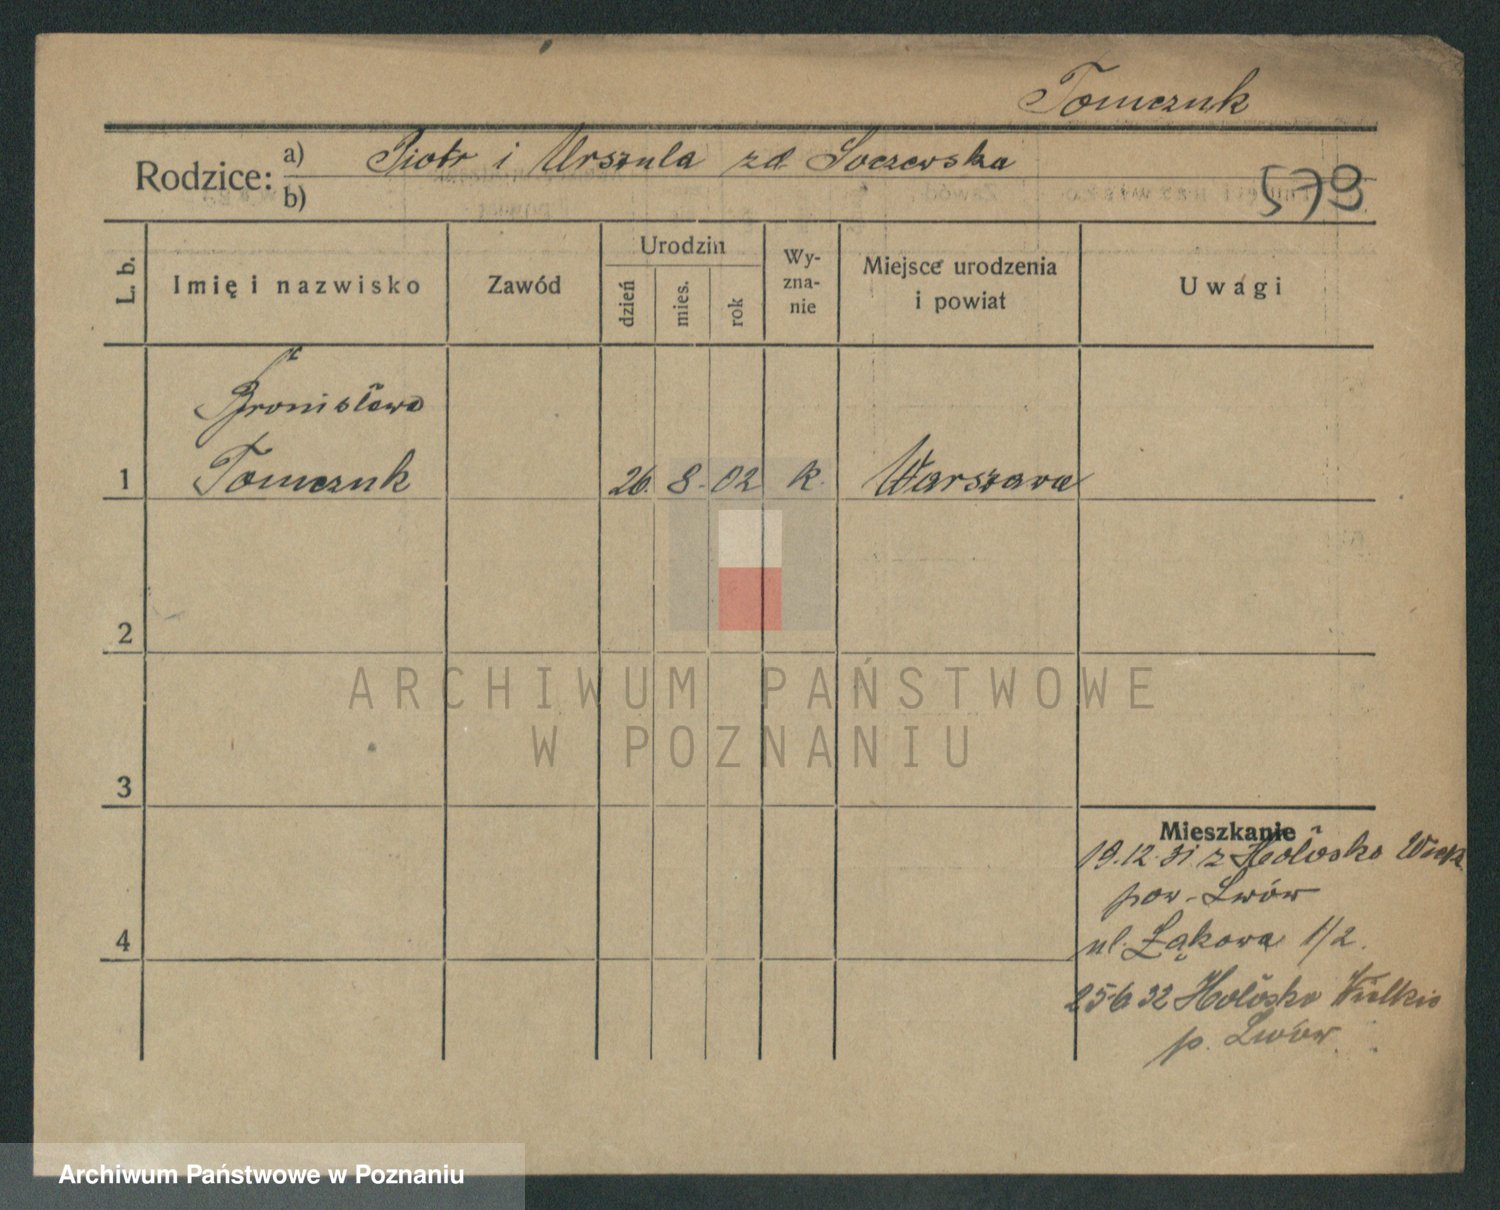 Tomczuk
Rodzice: a) Piotr i Urszula zd Soczewska
b)
579
L. b.
Imię i nazwisko
Zawód
Urodzin
dzień
mies.
rok
Wy-
zna-
nie
Miejsce urodzenia
i powiat
Uwagi
Bronisława
1 Tomczuk 26. 8. 02 k. Warszawa
2
3
4
Mieszkanie
19.12.31 z Hołosko Wielk.
pow. Lwów
ul. Łąkowa 1/2.
25.6.32 Hołosko Wielkie
p. Lwów
ARCHIWUM PAŃSTWOWE
W POZNANIU
Archiwum Państwowe w Poznaniu